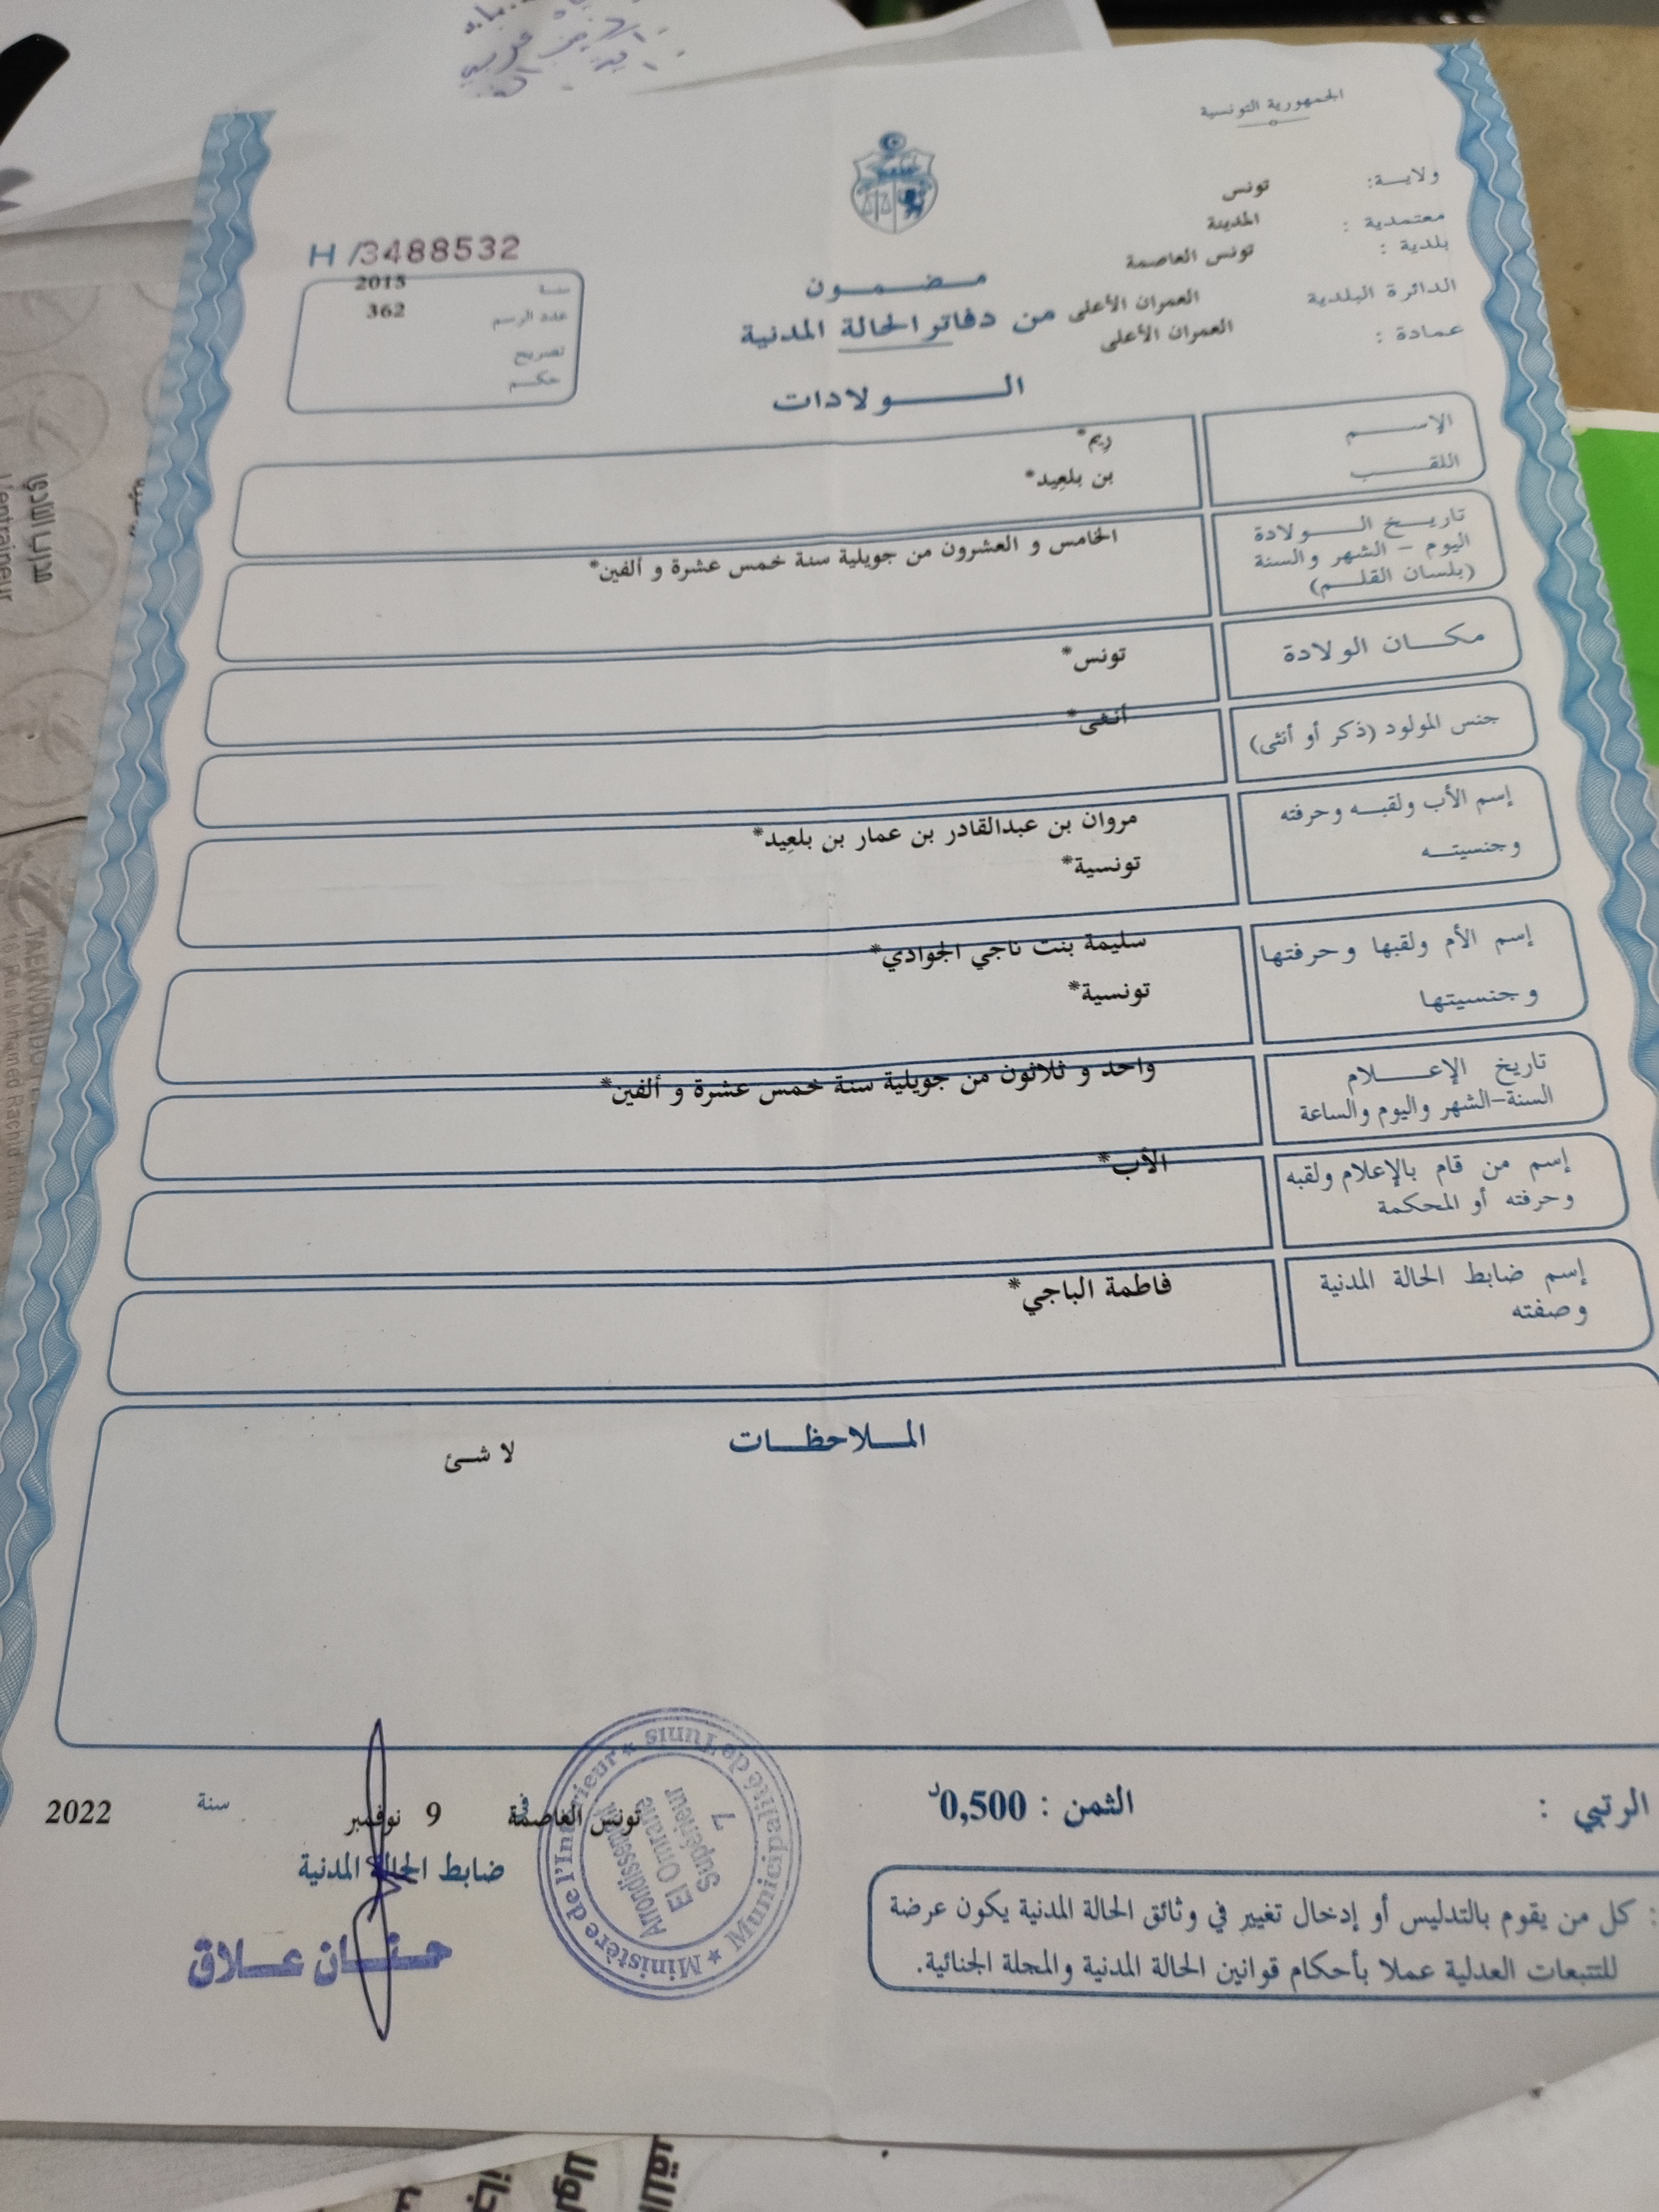 الجمهورية التونسية
ولايـــة: تونس
معتمدية : المدينة
بلدية : تونس العاصمة
الدائرة البلدية العمران الأعلى
عمادة : العمران الأعلى
H /3488532
سنة 2015
عدد الرسم 362
تصريح
حكم
مضمون
من دفاتر الحالة المدنية
الولادات
الإسم ريم*
اللقب بن بلعيد*
تاريخ الولادة
اليوم - الشهر والسنة
(بلسان القلم)
الخامس و العشرون من جويلية سنة خمس عشرة و ألفين*
مكان الولادة تونس*
جنس المولود (ذكر أو أنثى) أنثى*
إسم الأب ولقبه وحرفته
وجنسيته
مروان بن عبدالقادر بن عمار بن بلعيد*
تونسية*
إسم الأم ولقبها وحرفتها
وجنسيتها
سليمة بنت ناجي الجوادي*
تونسية*
تاريخ الإعلام
السنة-الشهر واليوم والساعة
واحد و ثلاثون من جويلية سنة خمس عشرة و ألفين*
إسم من قام بالإعلام ولقبه
وحرفته أو المحكمة
الأب*
إسم ضابط الحالة المدنية
وصفته
فاطمة الباجي*
الملاحظات
لا شئ
الرتبي :
الثمن : 0,500د
تونس العاصمة في 9 نوفمبر سنة 2022
ضابط الحالة المدنية
حنان علاق
Ministère de l'Intérieur ★ Municipalité de Tunis ★
Arrondissement
El Omrane
Supérieur
7
: كل من يقوم بالتدليس أو إدخال تغيير في وثائق الحالة المدنية يكون عرضة
للتتبعات العدلية عملا بأحكام قوانين الحالة المدنية والمجلة الجنائية.
مدرب النادي
L'entraineur
TAEKWONDO